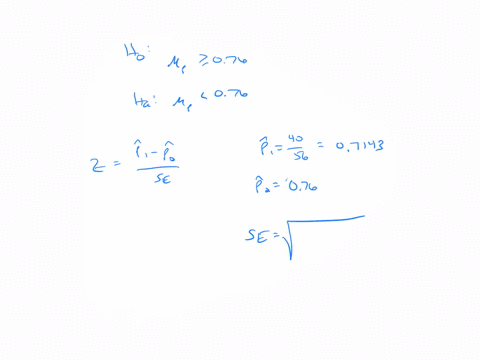 H₀: μₚ ≥ 0.76
Hₐ: μₚ < 0.76
Z = (p̂₁ - p̂₀) / SE
p̂₁ = 40/56 = 0.7143
p̂₀ = 0.76
SE = √